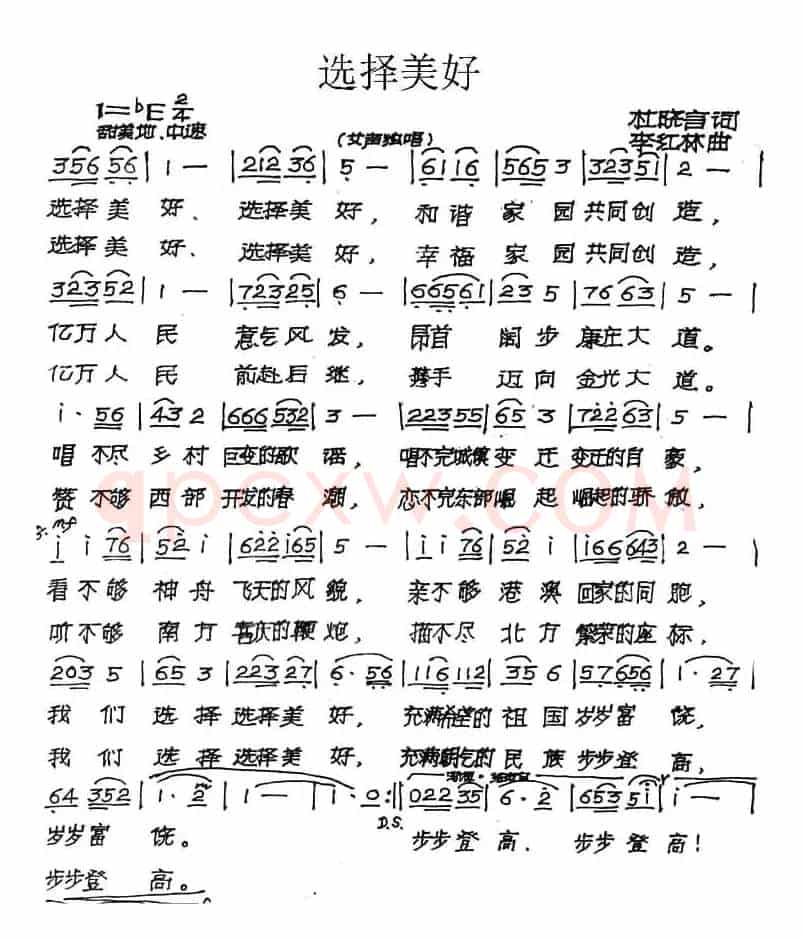 选择美好
1=♭E 2/4
甜美地、中速
(女声独唱)
杜晓言词
李红林曲
356 56 | 1 — | 212 36 | 5 — | 6116 | 565 3 | 32351 | 2 — |
选择美 好、 选择美 好, 和谐 家 园共同创 造,
选择美 好、 选择美 好, 幸福 家 园共同创 造,
32352 | 1 — | 72325 | 6 — | 66561 | 23 5 | 76 63 | 5 — |
亿万人 民 意气风 发, 昂首 阔 步 康庄大 道。
亿万人 民 前赴后 继, 携手 迈 向 金光大 道。
i · 56 | 43 2 | 666 532 | 3 — | 22355 | 65 3 | 722 63 | 5 — |
唱 不尽 乡 村 巨变的歌 谣, 唱不完城镇 变 迁 变迁的自 豪,
赞 不够 西 部 开发的春 潮, 恋不完东部 崛 起 崛起的骄 傲,
mf
i i 76 | 52 i | 622 i65 | 5 — | i i 76 | 52 i | i66 643 | 2 — |
看 不 够 神 舟 飞天的风 貌, 亲 不 够 港 澳 回家的同 胞,
听 不 够 南 方 喜庆的鞭 炮, 描 不 尽 北 方 繁荣的座 标,
203 5 | 65 3 | 223 27 | 6 · 56 | 116 112 | 35 6 | 57656 | 1 · 27 |
我 们 选 择 选择美 好, 充满希望的 祖 国 岁岁富 饶,
我 们 选 择 选择美 好, 充满朝气的 民 族 步步登 高,
64 352 | 1 · 2 | 1 — | 1 · 0 :| 022 35 | 6 · 2 | 653 5i | i — |
D.S.
岁岁富 饶。 步步登 高、 步步登 高!
步步登 高。
qpcxw.com